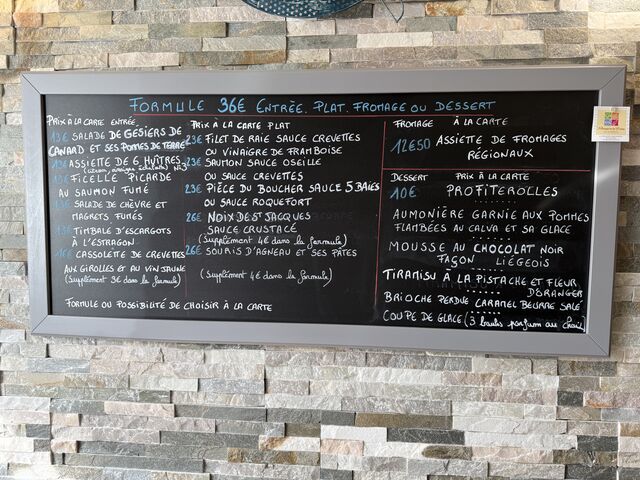 FORMULE 36€ ENTRÉE. PLAT. FROMAGE OU DESSERT
PRIX À LA CARTE ENTRÉE
13€ SALADE DE GESIERS DE
CANARD ET SES POMMES DE TERRE
13€ ASSIETTE DE 6 HUÎTRES
N°3
13€ FICELLE PICARDE
AU SAUMON FUMÉ
13€ SALADE DE CHÈVRE ET
MAGRETS FUMÉS
13€ TIMBALE D'ESCARGOTS
À L'ESTRAGON
16€ CASSOLETTE DE CREVETTES
AUX GIROLLES ET AU VIN JAUNE
(Supplément 3€ dans la formule)
FORMULE OU POSSIBILITÉ DE CHOISIR À LA CARTE
PRIX À LA CARTE PLAT
23€ FILET DE RAIE SAUCE CREVETTES
OU VINAIGRE DE FRAMBOISE
23€ SAUMON SAUCE OSEILLE
OU SAUCE CREVETTES
23€ PIÈCE DU BOUCHER SAUCE 5 BAIES
OU SAUCE ROQUEFORT
26€ NOIX DE ST JACQUES
SAUCE CRUSTACÉ
(Supplément 4€ dans la formule)
26€ SOURIS D'AGNEAU ET SES PÂTES
(Supplément 4€ dans la formule)
FROMAGE À LA CARTE
12€50 ASSIETTE DE FROMAGES
RÉGIONAUX
DESSERT PRIX À LA CARTE
10€ PROFITEROLLES
AUMONIÈRE GARNIE AUX POMMES
FLAMBÉES AU CALVA ET SA GLACE
MOUSSE AU CHOCOLAT NOIR
FAÇON LIÉGEOIS
TIRAMISU À LA PISTACHE ET FLEUR
D'ORANGER
BRIOCHE PERDUE CARAMEL BEURRE SALÉ
COUPE DE GLACE (3 boules parfum au choix)